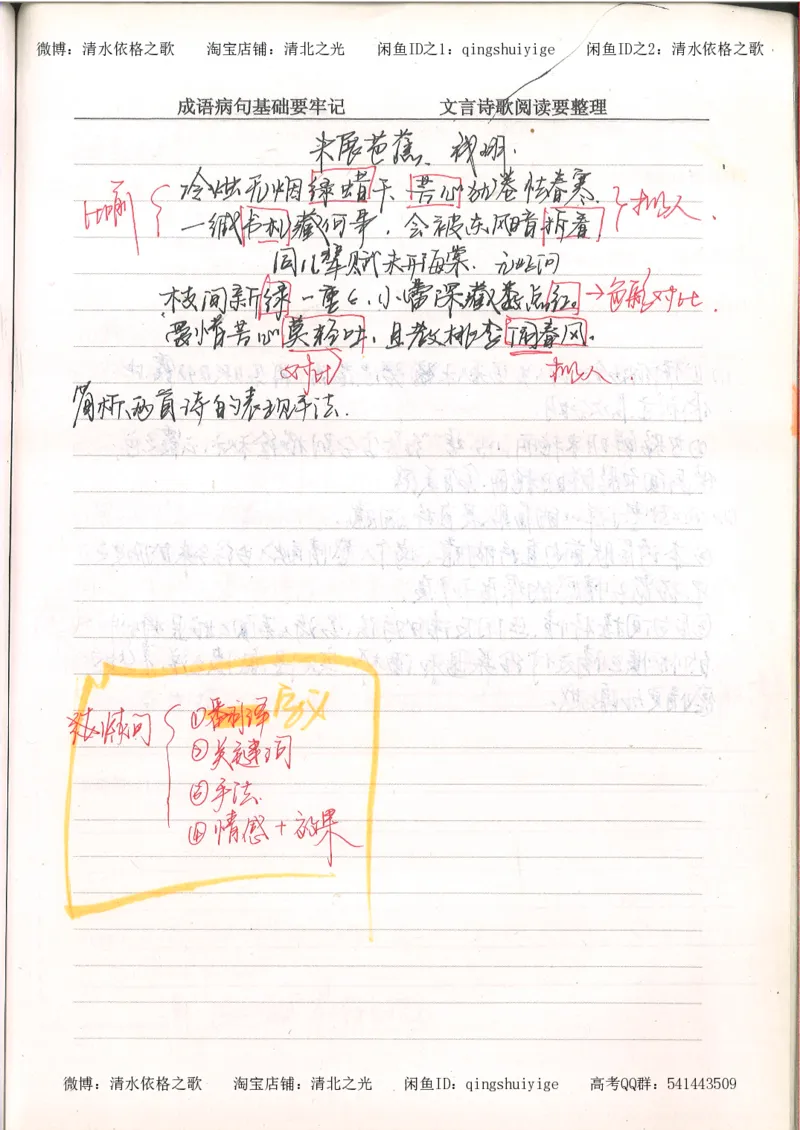 微博：清水依格之歌 淘宝店铺：清北之光 闲鱼ID之1：qingshuiyige 闲鱼ID之2：清水依格之歌
成语病句基础要牢记 文言诗歌阅读要整理
未展芭蕉 钱珝.
比喻 { 冷烛无烟绿蜡干 芳心犹卷怯春寒. } 拟人.
一缄书札藏何事，会被东风暗拆看
同儿辈赋未开海棠. 元好问
枝间新绿一重重，小蕾深藏数点红。→色彩对比.
爱惜芳心莫轻吐，且教桃李闹春风.
对比 拟人.
简析两首诗的表现手法.
①
②关键词
③手法.
④情感+效果
微博：清水依格之歌 淘宝店铺：清北之光 闲鱼ID：qingshuiyige 高考QQ群：541443509